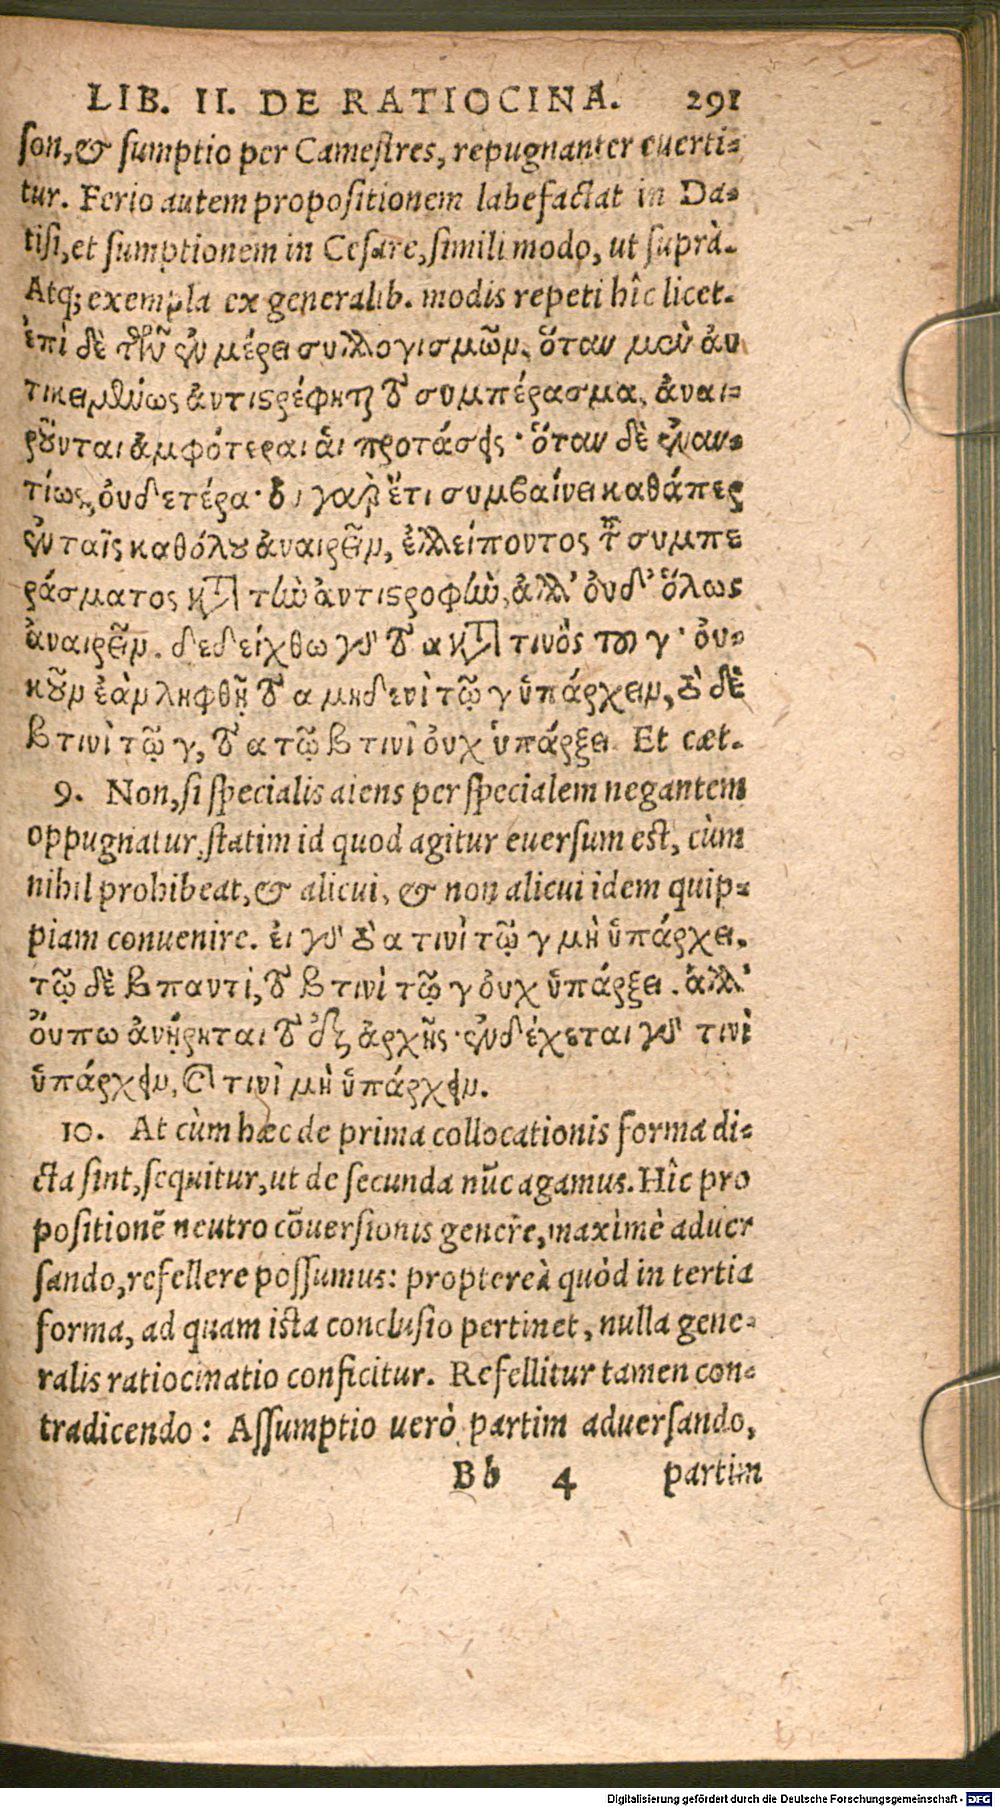 LIB. II. DE RATIOCINA. 291
son, & sumptio per Camestres, repugnanter euerti-
tur. Ferio autem propositionem labefactat in Da-
tisi, et sumptionem in Cesare, simili modo, ut suprà.
Atq; exempla ex generalib. modis repeti hîc licet.
ἐπὶ δὲ τῶν ἐν μέρει συλλογισμῶν, ὅταν μὲν ἀν
τικειμένως ἀντιστρέφηται τὸ συμπέρασμα, ἀναι-
ροῦνται ἀμφότεραι ἁι προτάσεις· ὅταν δὲ ἐναν-
τίως, ὀυδετέρα· ὀυ γὰρ ἔτι συμβαίνει καθάπερ
ἐν ταῖς καθόλου ἀναιρεῖν, ἐλλείποντος τοῦ συμπε
ράσματος κατὰ τὴν ἀντιστροφὴν, ἀλλ' ὀυδ' ὅλως
ἀναιρεῖν. δεδείχθω γὰρ τὸ α κατὰ τινὸς τοῦ γ· ὀυ-
κοῦν ἐὰν ληφθῇ τὸ α μηδενὶ τῷ γ ὑπάρχειν, τὸ δὲ
β τινὶ τῷ γ, τὸ α τῷ β τινὶ ὀυχ ὑπάρξει. Et cæt.
9. Non, si specialis aiens per specialem negantem
oppugnatur, statim id quod agitur euersum est, cùm
nihil prohibeat, & alicui, & non alicui idem quip-
piam conuenire. ἐι γὰρ τὸ α τινὶ τῷ γ μὴ ὑπάρχει,
τῷ δὲ β παντὶ, τὸ β τινὶ τῷ γ ὀυχ ὑπάρξει. ἀλλ'
ὄυπω ἀνῄρηται τὸ ἐξ ἀρχῆς· ἐνδέχεται γὰρ τινὶ
ὑπάρχειν, καὶ τινὶ μὴ ὑπάρχειν.
10. At cùm hæc de prima collocationis forma di-
cta sint, sequitur, ut de secunda nūc agamus. Hîc pro
positionē neutro cōuersionis genere, maximè aduer
sando, refellere possumus: proptereà quòd in tertia
forma, ad quam ista conclusio pertinet, nulla gene-
ralis ratiocinatio conficitur. Refellitur tamen con-
tradicendo: Assumptio uerò partim aduersando,
Bb 4 partim
Digitalisierung gefördert durch die Deutsche Forschungsgemeinschaft - DFG